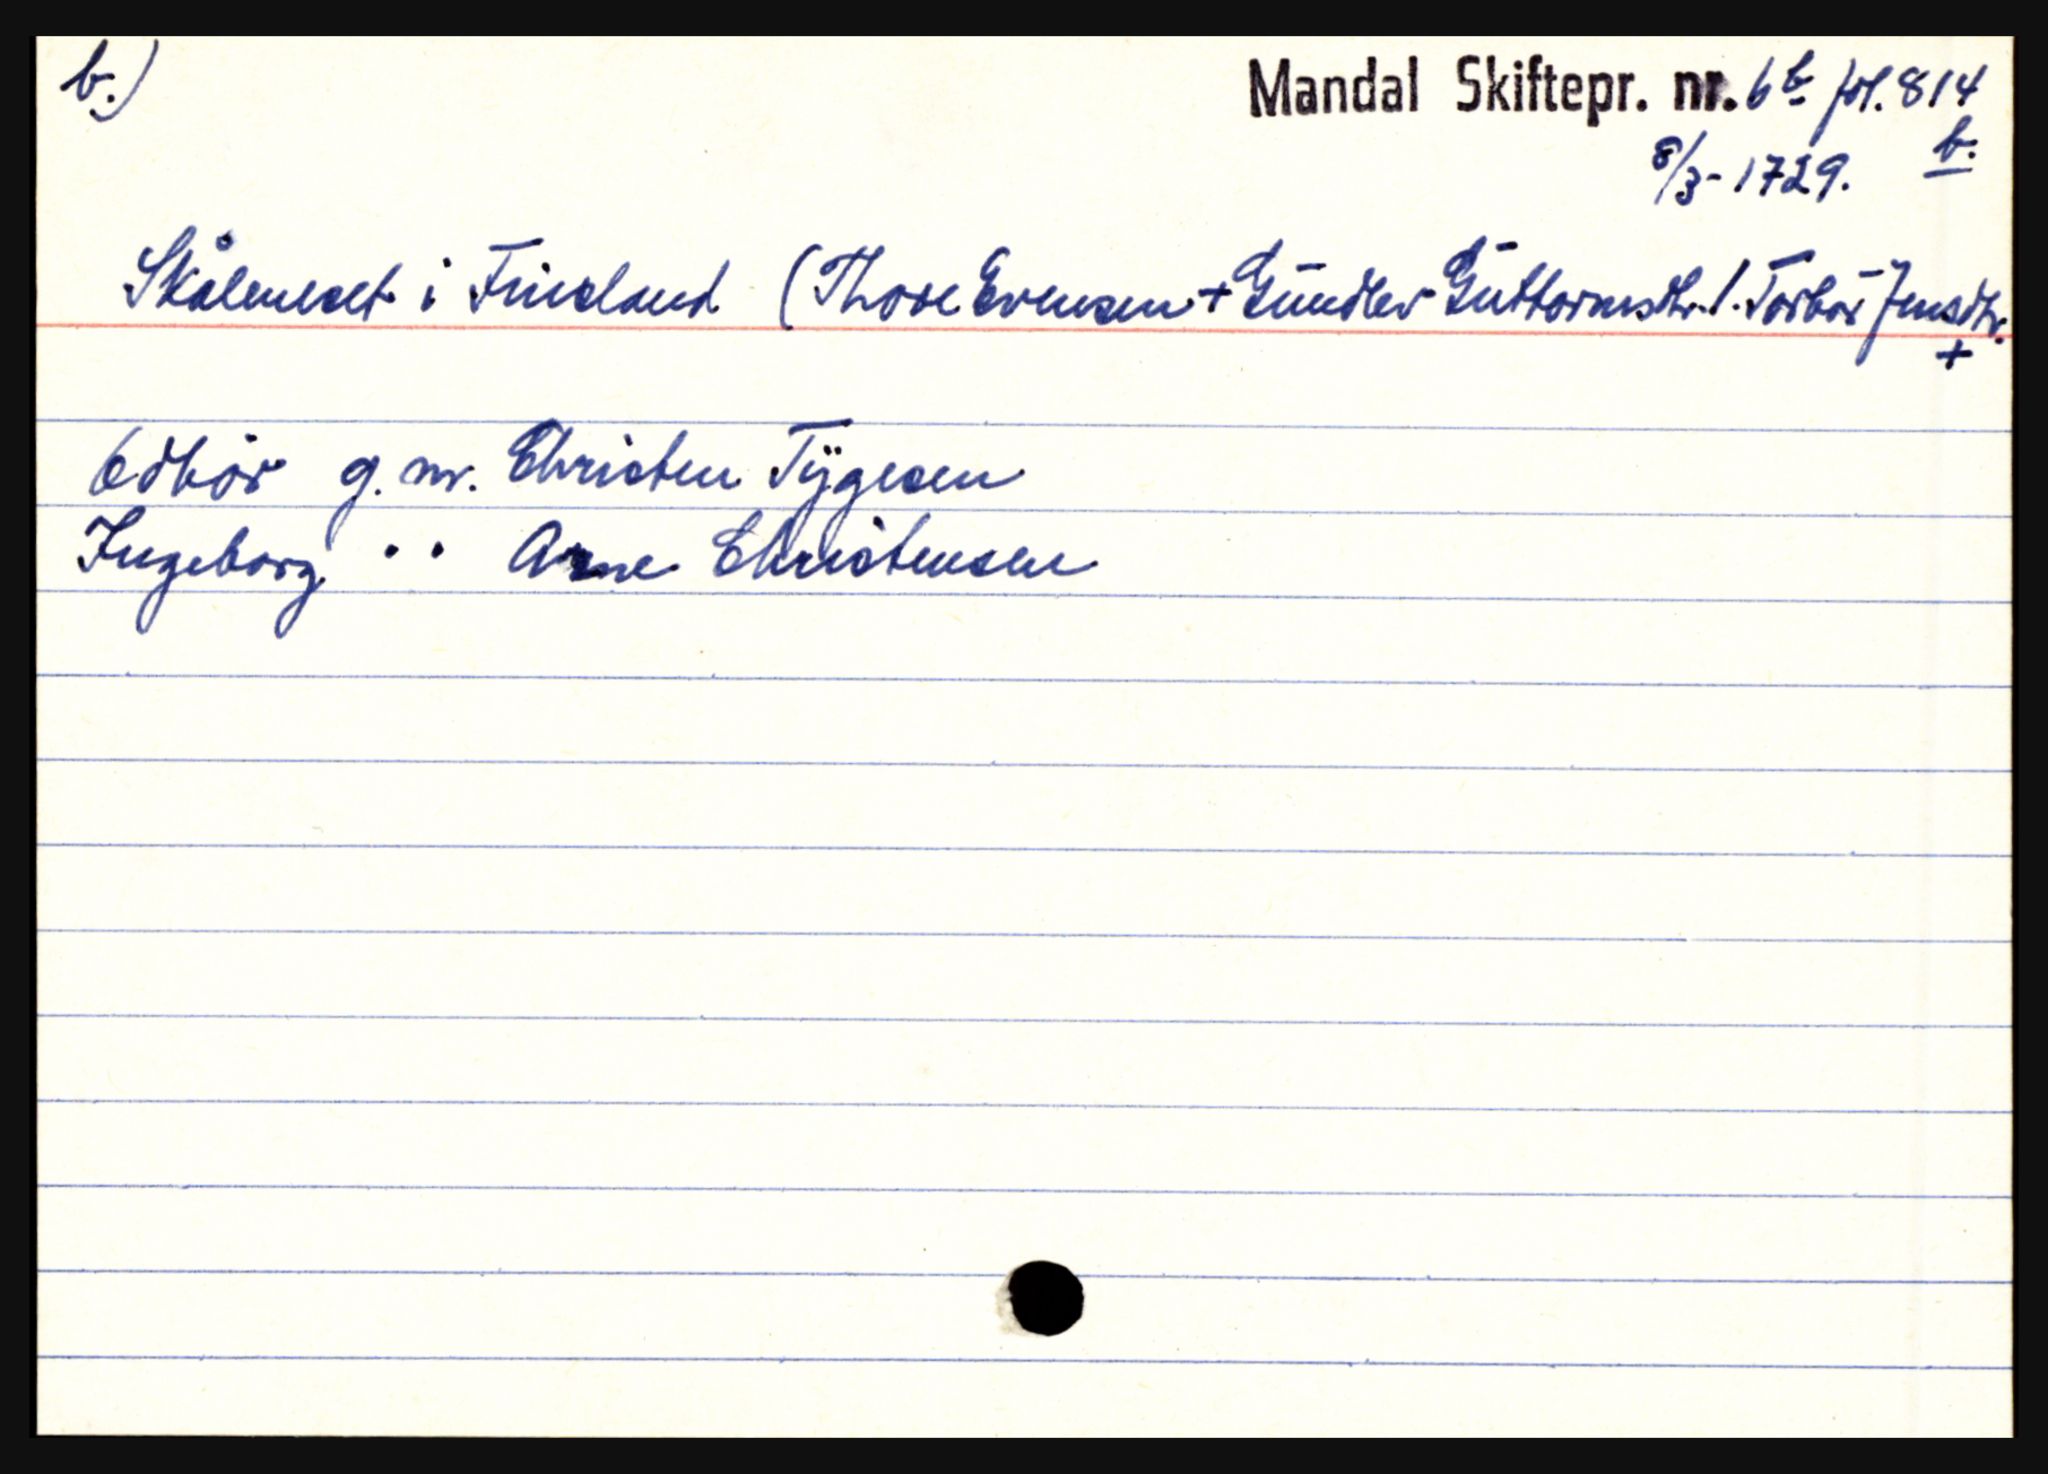 b.)
Mandal Skiftepr. nr. 6b fol. 814
b.
8/3-1729.
Skåleneset i Finsland (Thore Evensen + Gundler Guttormsdtr. /. Torbor Jensdtr.
+
Odbör g. m. Christen Tÿgesen
Ingeborg " " Arne Christensen